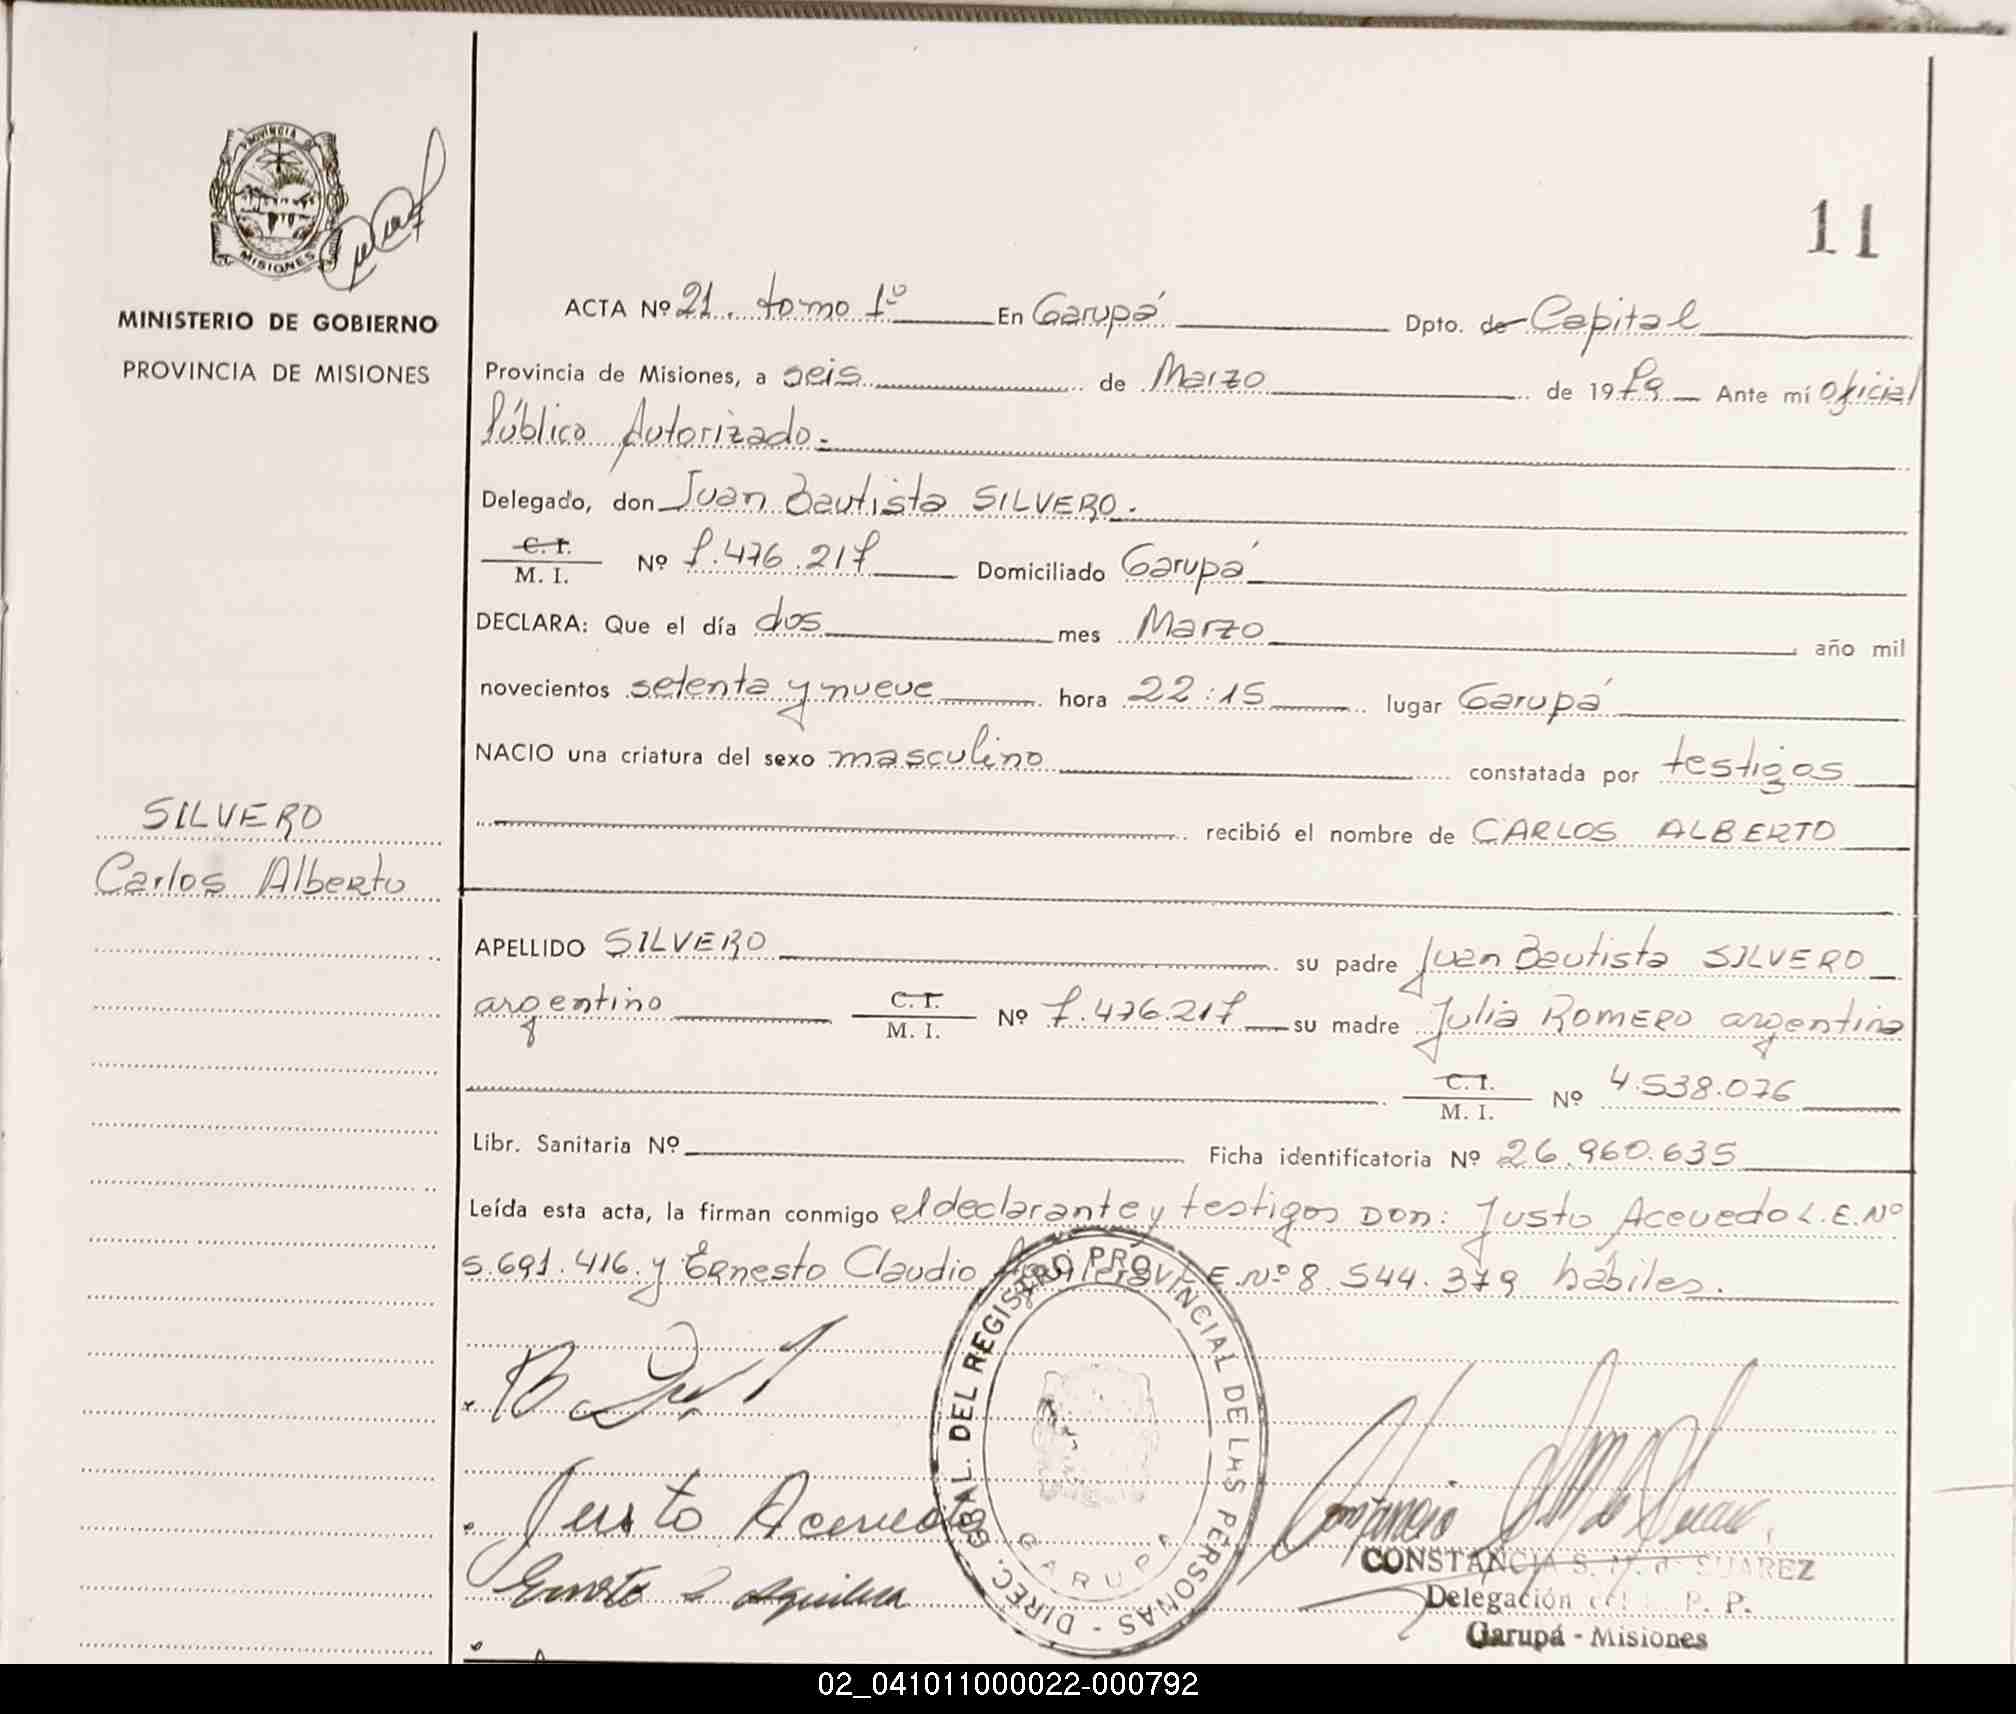 11
PROVINCIA DE
MISIONES
MINISTERIO DE GOBIERNO
PROVINCIA DE MISIONES
ACTA Nº 21. tomo 1º En Garupá Dpto. de Capital
Provincia de Misiones, a seis de Marzo de 1979 Ante mí Oficial
Público Autorizado.
Delegado, don Juan Bautista SILVERO.
C. I.
M. I. Nº 7.476.217 Domiciliado Garupá
DECLARA: Que el día dos mes Marzo año mil
novecientos setenta y nueve hora 22:15 lugar Garupá
NACIO una criatura del sexo masculino constatada por testigos
recibió el nombre de CARLOS ALBERTO
SILVERO
Carlos Alberto
APELLIDO SILVERO su padre Juan Bautista SILVERO
argentino C. I. M. I. Nº 7.476.217 su madre Julia ROMERO argentina
C. I. M. I. Nº 4.538.076
Libr. Sanitaria Nº Ficha identificatoria Nº 26.960.635
Leída esta acta, la firman conmigo el declarante y testigos Don: Justo Acevedo L.E.Nº
5.691.416. y Ernesto Claudio Aguilera L.E.Nº 8.544.379 hábiles.
DIREC. GRAL. DEL REGISTRO PROVINCIAL DE LAS PERSONAS -
GARUPA
Justo Acevedo
Ernesto C Aguilera
CONSTANCIA S. M. de SUAREZ
Delegación del P. P.
Garupá - Misiones
02_041011000022-000792